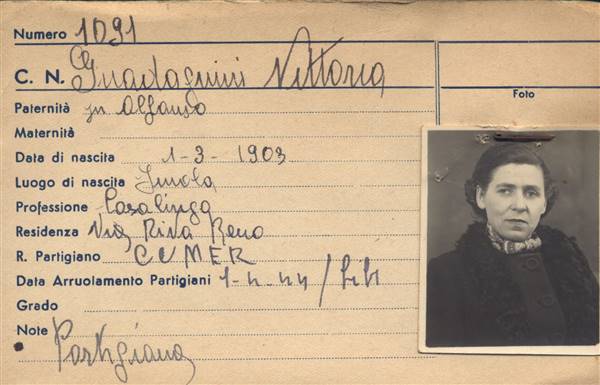 Numero 1091
C. N. Guadagnini Vittoria
Foto
Paternità fu Alfonso
Maternità
Data di nascita 1-3-1903
Luogo di nascita Imola
Professione Casalinga
Residenza Via Riva Reno
R. Partigiano CUMER
Data Arruolamento Partigiani 1-4-44 / Lib
Grado
Note Partigiana